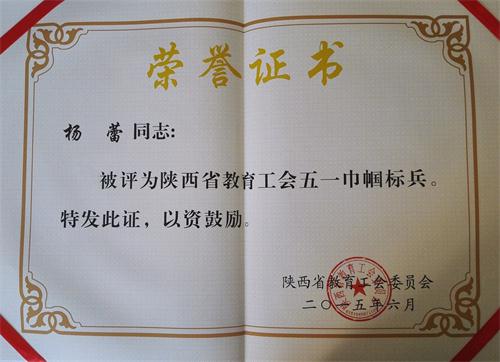 荣誉证书
杨 蕾 同志：
被评为陕西省教育工会五一巾帼标兵。
特发此证，以资鼓励。
陕西省教育工会委员会
二〇一五年六月